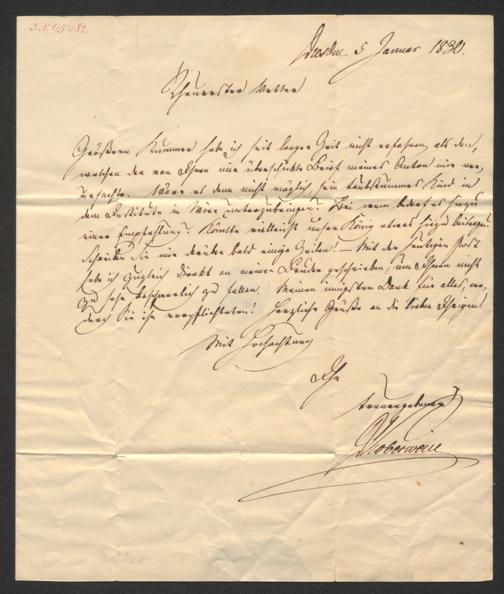 I.N. 95482
Dresden 5 Januar 1830.
Theuerster Vetter
Größeren Kummer hab ich seit langer Zeit nicht erfahren, als den,
welchen der von Ihnen mir überschickte Brief meines Anton mir ver-
ursachte. Wäre es denn nicht möglich, sein taubstummes Kind in
dem Institute in Wien unterzubringen? Bei wem bedarf es hiezu
einer Empfehlung? Könnte vielleicht unser König etwas hiezu beitragen?
Schreiben Sie mir darüber bald einige Zeilen! – Mit der heutigen Post
hab ich zugleich direkt an meinen Bruder geschrieben, um Ihnen nicht
zu sehr beschwerlich zu fallen. Meinen innigsten Dank für alles, wo-
durch Sie ihn verpflichteten! Herzliche Grüße an die lieben Ihrigen!
Mit Hochachtung
Ihr
treuergebener
Koberwein